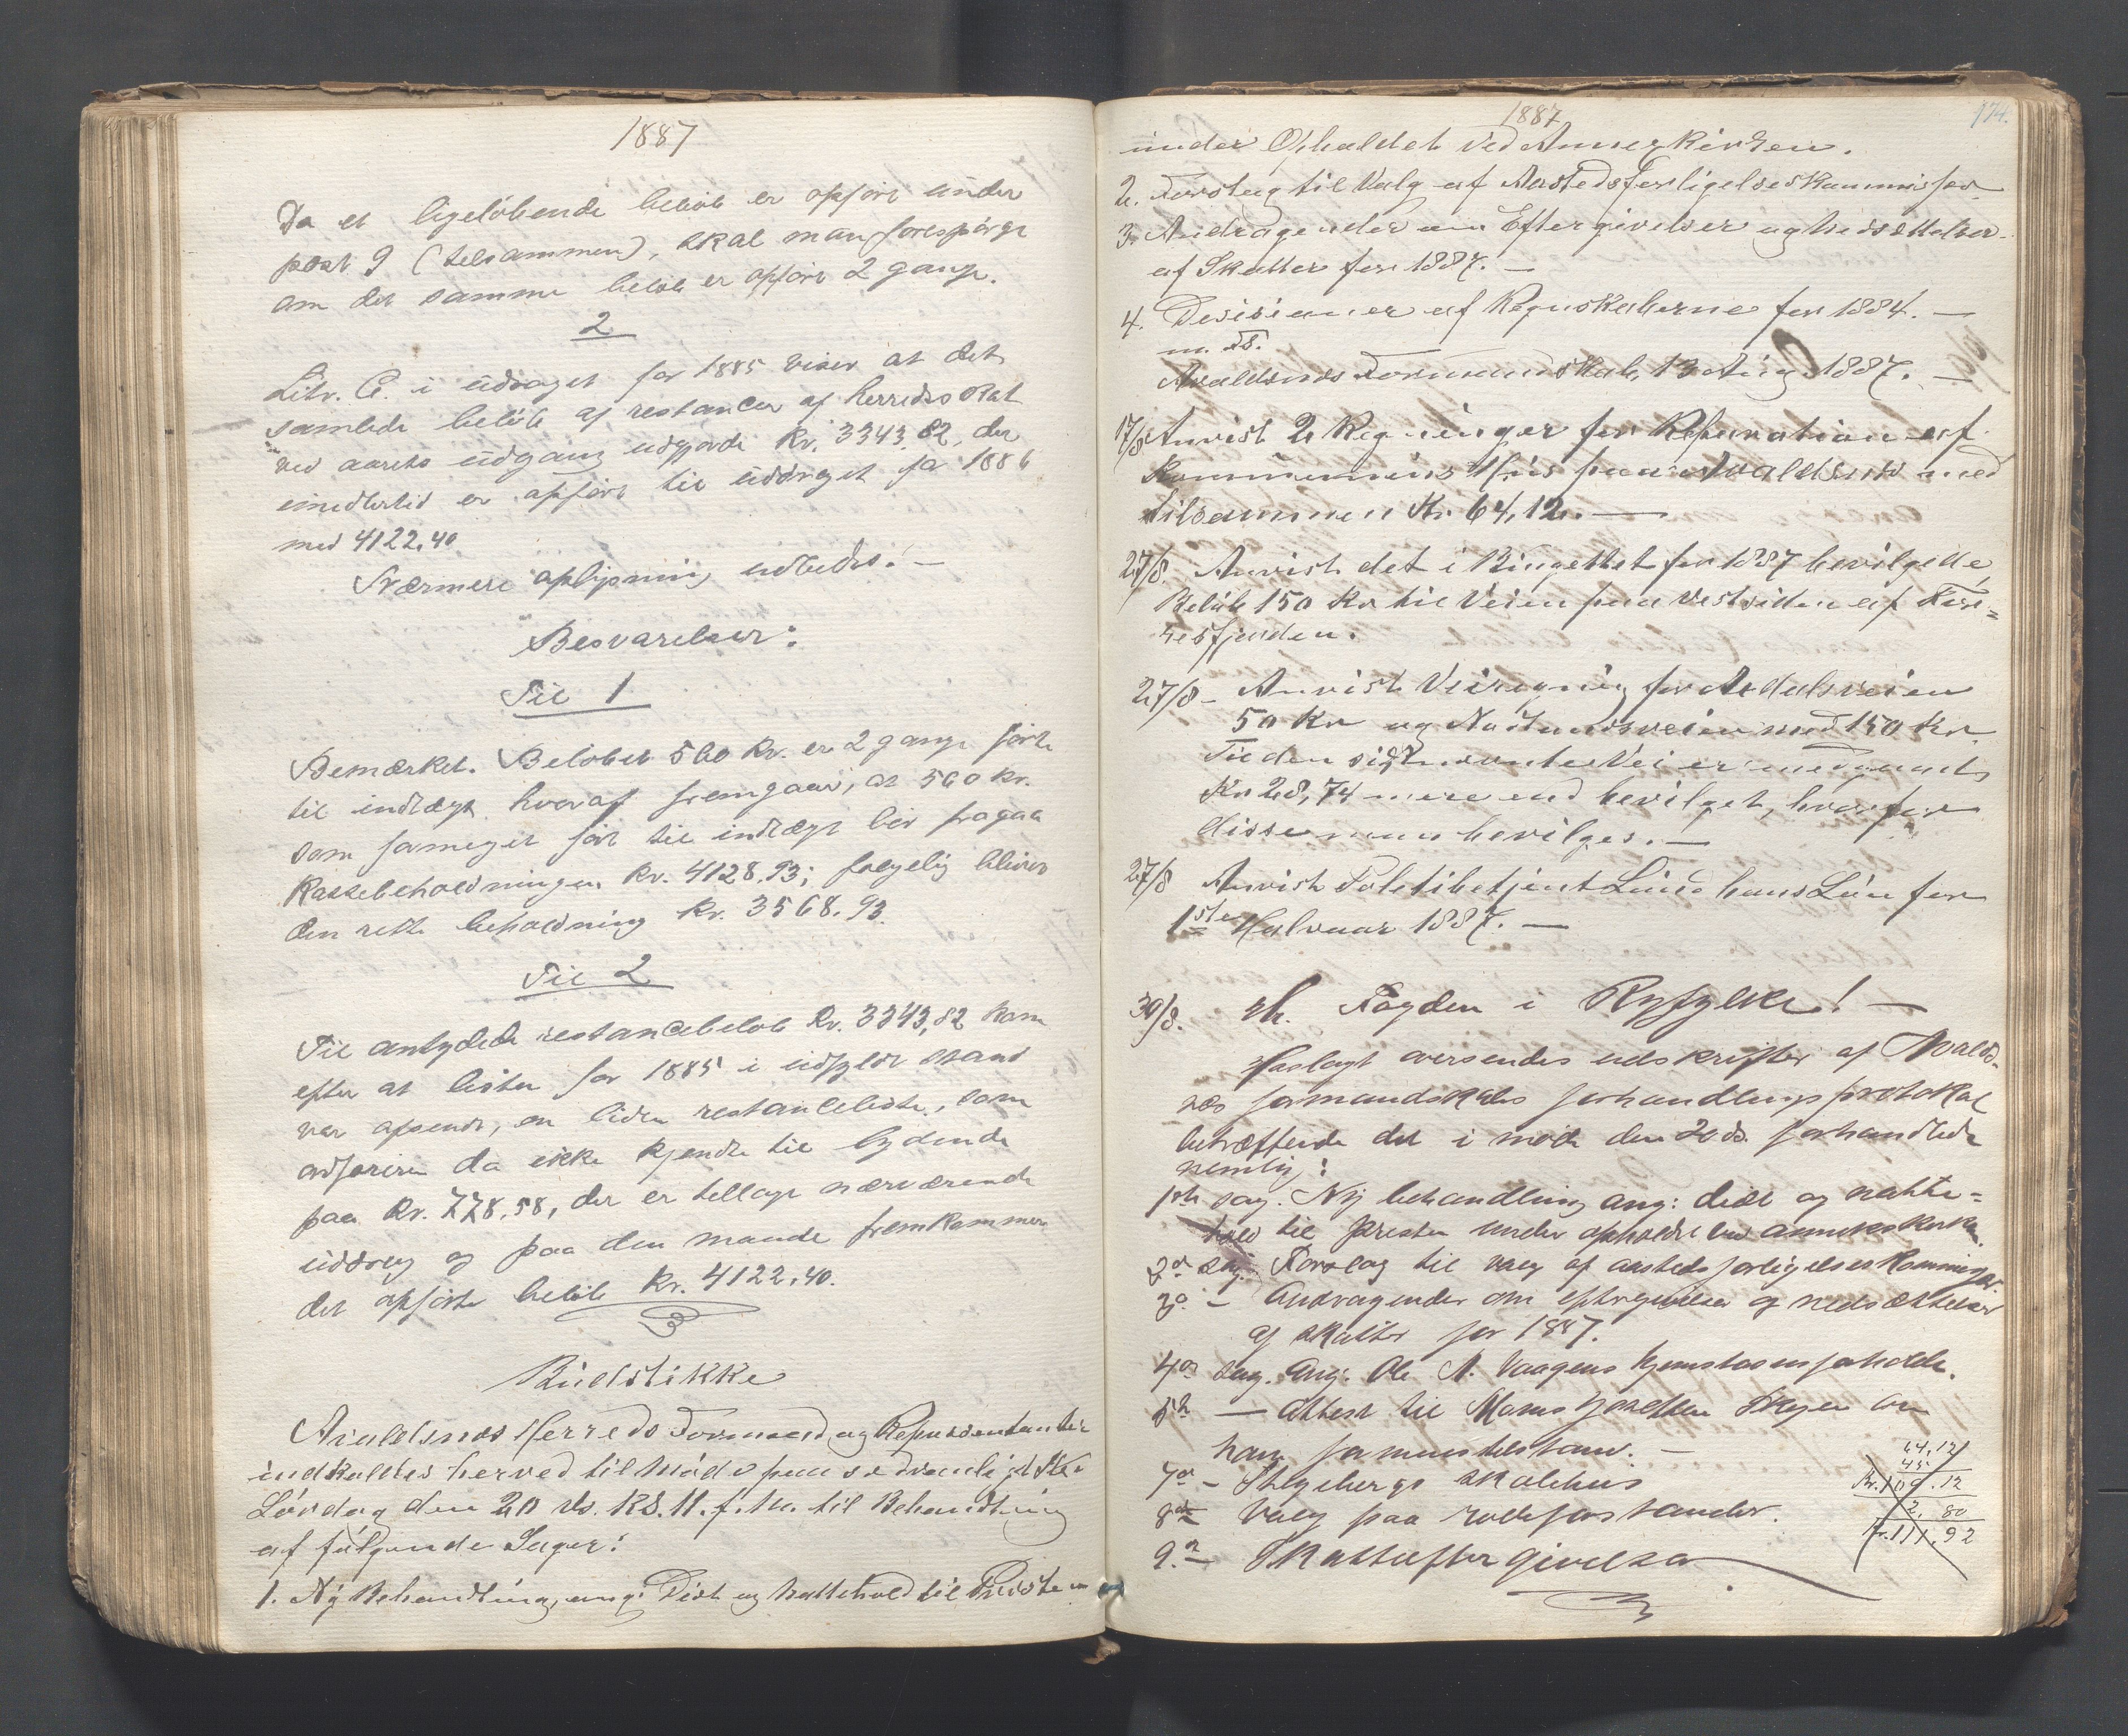 1887
Da et ligelöbende belöb er opfört under
post 9 (tilsammen), skal man forespörge
om det samme belöb er opfört 2 gange.
2
Litr. C. i uddraget for 1885 viser at det
samlede belöb af restancer af herredsskat
ved aarets udgang udgjorde Kr. 3343.82, der
imidlertid er opfört til uddraget fa 1886
med 4122.40.
Nærmere oplysning udbedes. —
Besvarelser:
Til 1
Bemærket. Belöbet 560 Kr. er 2 gange fört
til indtægt hvoraf fremgaar, at 560 kr.
som formeget fört til indtægt bör fragaa
Kassebeholdningen Kr. 4128.93; fölgelig bliver
den rette beholdning Kr. 3568.93.
Til 2
Til antydede restancebelöb Kr. 3343,82 kom
efter at listen for 1885 i udfyldt stand
var afsendt, en liden restanceliste, som
ordföreren da ikke kjendte til lydende
paa Kr. 778.58, der er tillagt nærværende
uddrag og paa den maade fremkommer
det opförte belöb Kr. 4122.40.
Budstikke
Avaldsnæs Herreds Formænd og Repræsentanter
indkaldes herved til Möde paa sædvanligt Sted
Lördag den 20 ds. Kl. 11. f. M. til Behandling
af fölgende Sager:
1. Ny Behandling ang. Diæt og Nattehold til Presten
1887
174.
under Opholdet ved Annexkirken.
2. Forslag til Valg af Aastedsforligelseskommissær
3. Andragender om Eftergivelser og Nedsættelser
af Skatter for 1887. —
4. Desisioner af Regnskaberne for 1884. —
m. V.
Avaldsnæs Formandskab, 13 Aug 1887. —
17/8 Anvist 2 Regninger for Reparation af
Kommunens Hus paa Avaldsnæs med
tilsammen Kr. 64,12. —
27/8. Anvist det i Budgettet for 1887 bevilgede
Belöb 150 Kr til Veien paa Vestsiden af Före=
resfjorden.
27/8 - Anvist Veiregning for Aadalsveien
50 Kr og Nostundsveien med 150 Kr.
Til den sidstnævnte Vei er medgaaet
Kr 28,74 mere end bevilget, hvorfor
disse maa bevilges. —
27/8 Anvist Politibetjent Lund hans Lön for
1ste Halvaar 1887. —
30/8. Hr. Fogden i Ryfylke! —
Hoslagt oversendes udskrifter af Avalds-
næs formandskabs forhandlingsprotokol
betræffende det i möde den 20 ds. forhandlede
nemlig:
1ste sag. Ny behandling ang: diæt og natte=
hold til presten under opholdet ved annekskirken.
2den sag. Forslag til valg af aastedsforligelseskommissær.
3die — Andragender om eftergivelser og nedsættelser
af skatter for 1887.
4de sag. Ang. Ole N. Vaagens forholde.
5te — Attest til Skeje om
hans formuestilstand. —
7de — skolehus
8de — Valg paa rodeforstander.
9de — Skatteeftergivelser
64,12
45
Kr. 109.12
2.80
Kr. 111.92